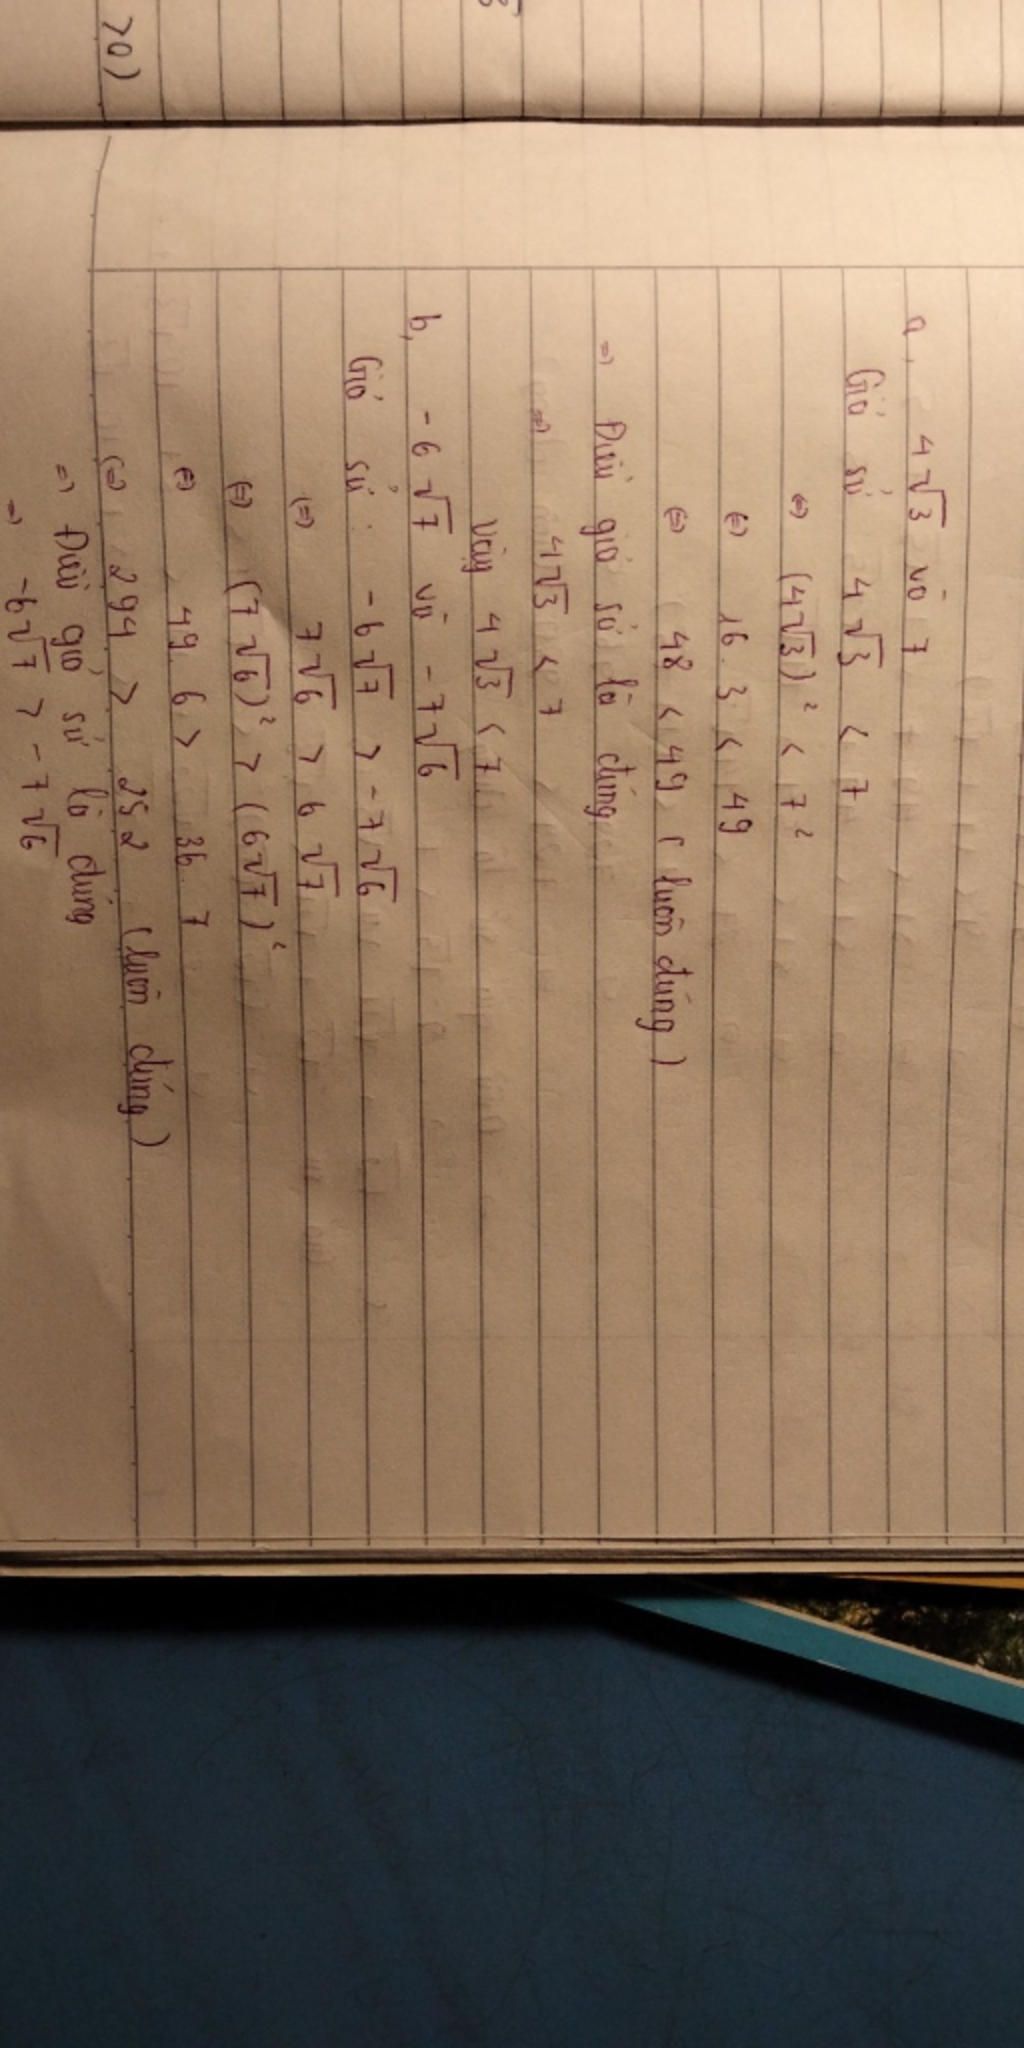 >0)
a, 4√3 và 7
Giả sử 4√3 < 7
⇔ (4√3)² < 7²
⇔ 16.3 < 49
⇔ 48 < 49 (luôn đúng)
⇒ Điều giả sử là đúng
⇒ 4√3 < 7
Vậy 4√3 < 7
b, -6√7 và -7√6
Giả sử: -6√7 > -7√6
⇔ 7√6 > 6√7
⇔ (7√6)² > (6√7)²
⇔ 49.6 > 36.7
⇔ 294 > 252 (luôn đúng)
⇒ Điều giả sử là đúng
⇒ -6√7 > -7√6